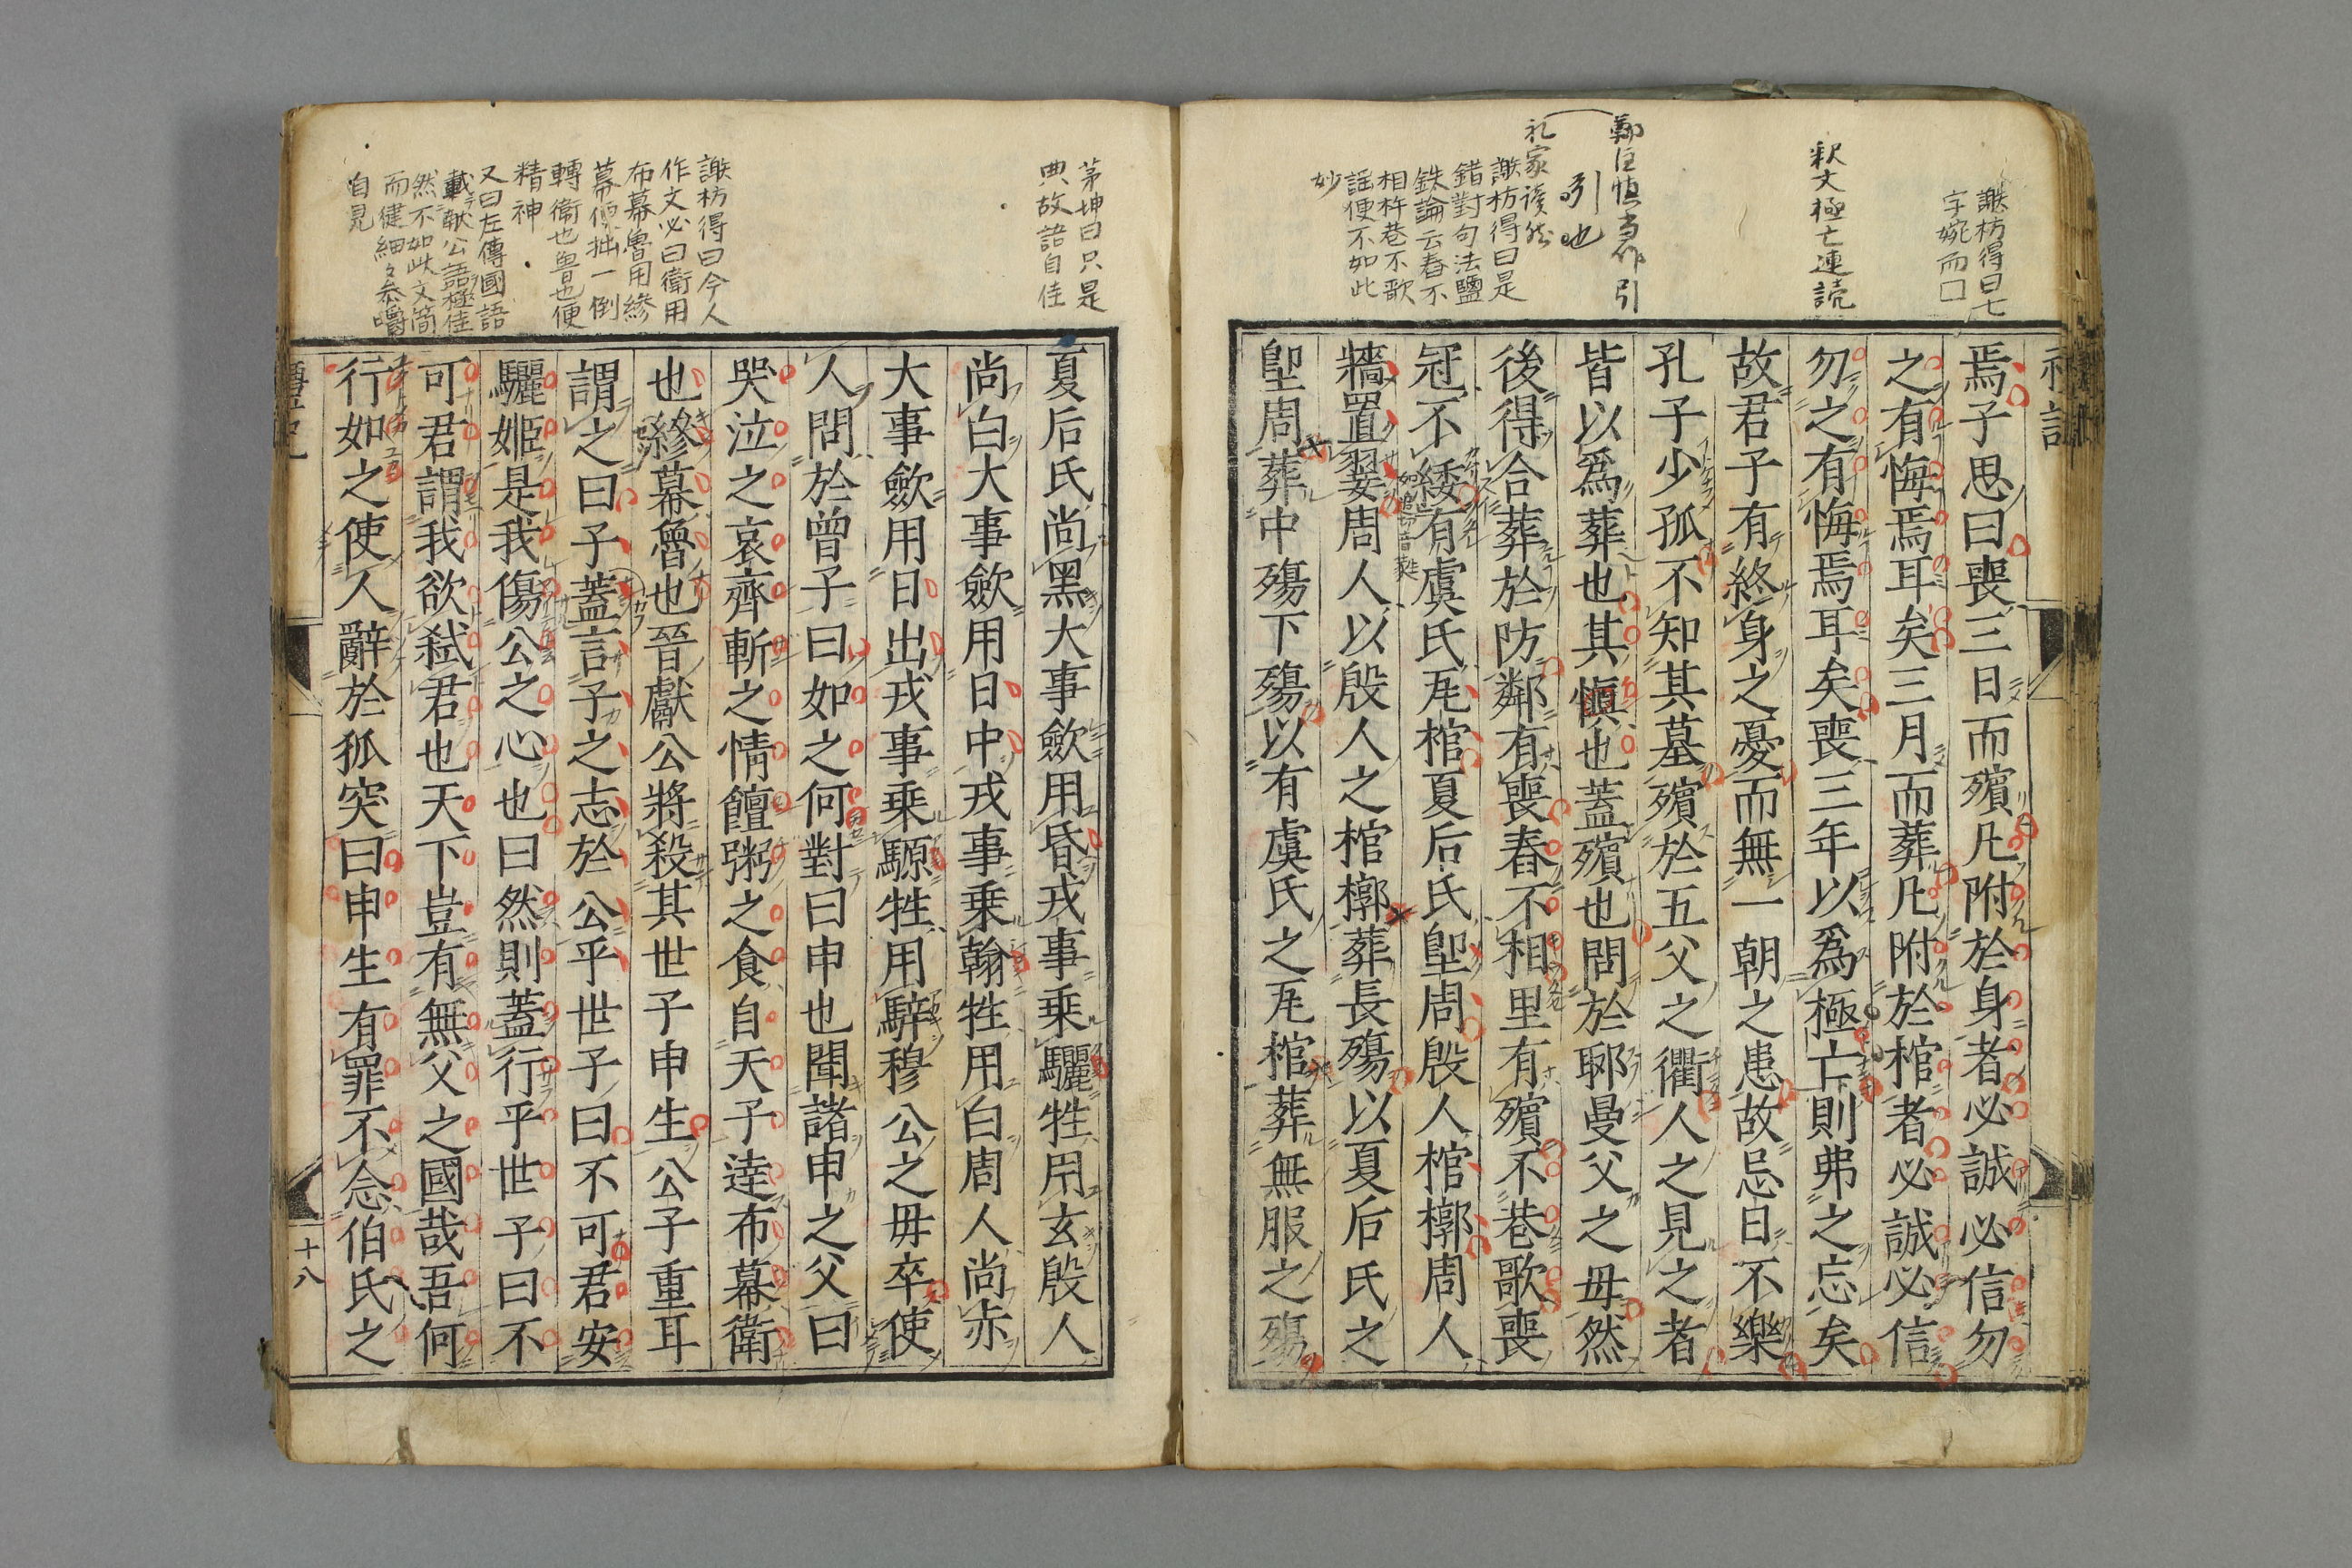 謝枋得曰七
字婉而口
釈文極亡連読
鄭注慎当作引
引也
礼家讀然
謝枋得曰是
錯對句法鹽
鉄論云舂不
相杵巷不歌
謡便不如此
妙
焉子思曰喪三日而殯凡附於身者必誠必信勿
之有悔焉耳矣三月而葬凡附於棺者必誠必信
勿之有悔焉耳矣喪三年以爲極亡則弗之忘矣
故君子有終身之憂而無一朝之患故忌日不樂
孔子少孤不知其墓殯於五父之衢人之見之者
皆以爲葬也其愼也蓋殯也問於郰曼父之母然
後得合葬於防鄰有喪舂不相里有殯不巷歌喪
冠不緌有虞氏瓦棺夏后氏堲周殷人棺槨周人
牆置翣周人以殷人之棺槨葬長殤以夏后氏之
堲周葬中殤下殤以有虞氏之瓦棺葬無服之殤
茅坤曰只是
典故語自佳
謝枋得曰今人
作文必曰衛用
布幕魯用縿
幕便拙一倒
轉衛也魯也便
精神
又曰左傳國語
載献公語極佳
然不如此文簡
而健細々参嚼
自見
夏后氏尚黑大事斂用昏戎事乗驪牲用玄殷人
尚白大事斂用日中戎事乗翰牲用白周人尚赤
大事斂用日出戎事乗騵牲用騂穆公之母卒使
人問於曾子曰如之何對曰申也聞諸申之父曰
哭泣之哀齊斬之情饘粥之食自天子達布幕衛
也縿幕魯也晉獻公將殺其世子申生公子重耳
謂之曰子蓋言子之志於公乎世子曰不可君安
驪姬是我傷公之心也曰然則蓋行乎世子曰不
可君謂我欲弑君也天下豈有無父之國哉吾何
行如之使人辭於狐突曰申生有罪不念伯氏之
十八